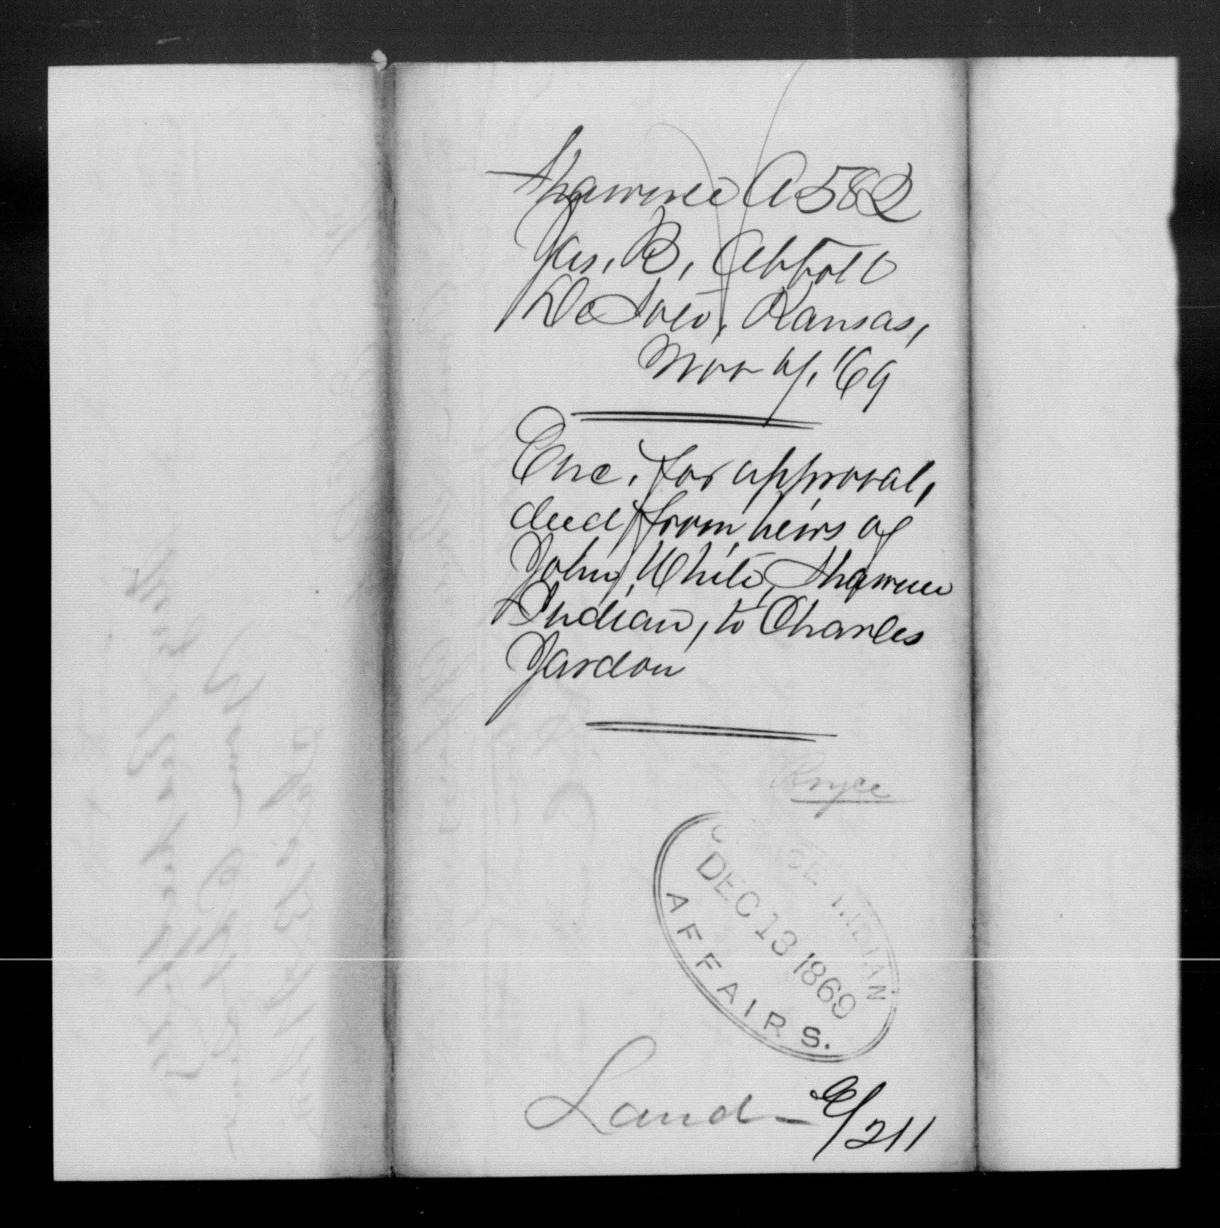 Shawnee A582
Jas. B. Abbott
De Soto, Kansas,
Nov 4, '69
Enc. for approval,
deed from heirs of
John White, Shawnee
Indian, to Charles
Yardon
OFFICE INDIAN
DEC 13 1869
AFFAIRS.
Land
211